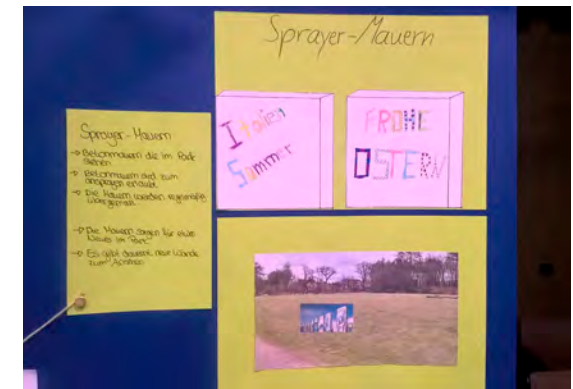 Sprayer-Mauern
Italien
Sommer
FROHE
OSTERN
Sprayer-Mauern
→ Betonmauern die im Park
stehen
→ Betonmauern sind zum
ansprayen erlaubt
→ Die Mauern werden regelmäßig
übergemalt
→ Die Mauern sorgen für etwas
Neues im Park
→ Es gibt dauernt neue Wände
zum